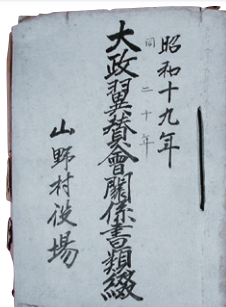 昭和十九年
同二十年
大政翼賛會關係書類綴
山野村役場